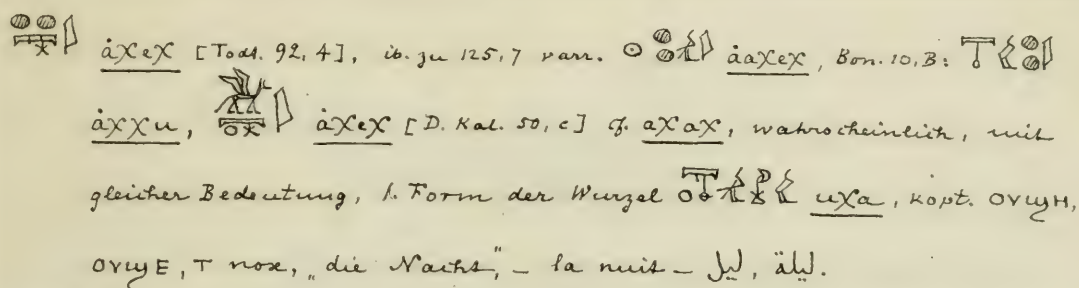 ȧχeχ [Todt. 92, 4], ib. zu 125,7 varr. ȧaχeχ, Bon. 10,B:
ȧχχu, ȧχeχ [D. Kal. 50, c] cf. aχaχ, wahrscheinlich, mit
gleicher Bedeutung, 1. Form der Wurzel uχa, kopt. ⲟⲩϣⲏ,
ⲟⲩϣⲉ, ⲧ nox, „die Nacht,“ – la nuit – ليل, ليلة.